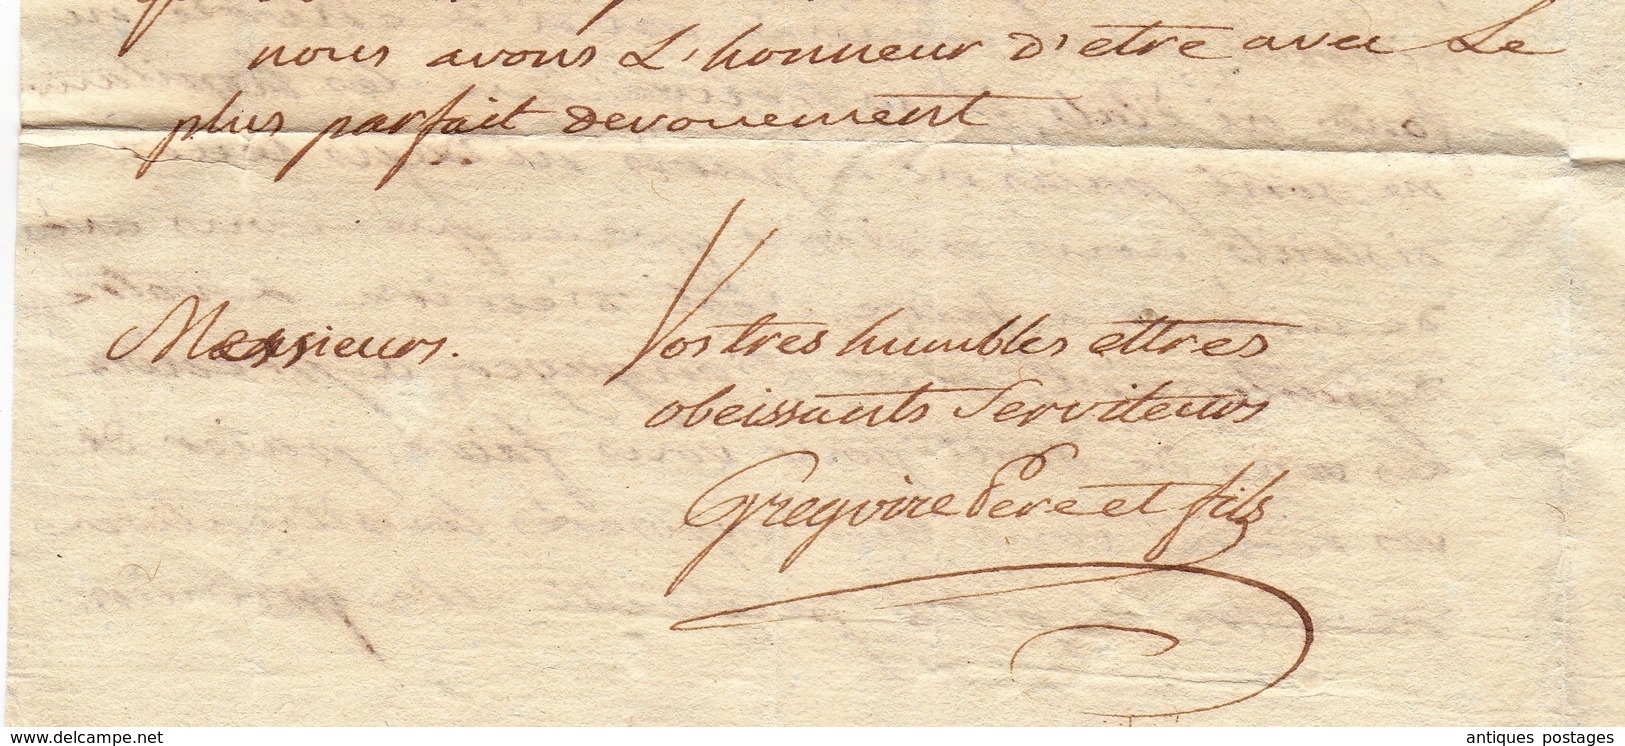 nous avons L'honneur d'etre avec Le
plus parfait devouement
Messieurs.
Vos tres humbles ettres
obeissants Serviteurs
Gregoire Pere et fils
www.delcampe.net
antiques postages